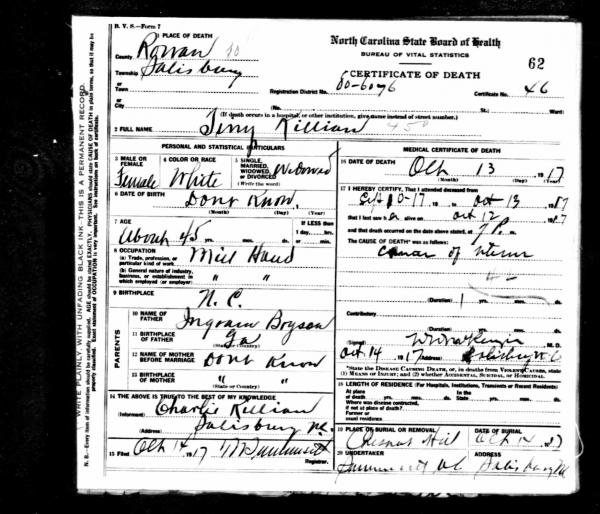 B. V. S.—Form 7
1 PLACE OF DEATH
County Rowan
Township Salisbury
or
Town
or
City
North Carolina State Board of Health
BUREAU OF VITAL STATISTICS
62
CERTIFICATE OF DEATH
Registration District No. 80-6096 Certificate No. 46
(No. St.; Ward)
(If death occurs in a hospital, or other institution, give name instead of street number.)
2 FULL NAME Killian
PERSONAL AND STATISTICAL PARTICULARS
3 MALE OR FEMALE Female
4 COLOR OR RACE White
5 SINGLE, MARRIED, WIDOWED, OR DIVORCED Widowed
(Write the word)
6 DATE OF BIRTH Dont Know
(Month) (Day) (Year)
7 AGE About 45 yrs. mos. ds.
If LESS than 1 day, hrs. or min.
8 OCCUPATION
(a) Trade, profession, or particular kind of work Mill Hand
(b) General nature of industry, business, or establishment in which employed (or employer) " "
9 BIRTHPLACE N. C.
PARENTS
10 NAME OF FATHER Ingram Bryson
11 BIRTHPLACE OF FATHER Ga
(State or Country)
12 NAME OF MOTHER BEFORE MARRIAGE Dont Know
13 BIRTHPLACE OF MOTHER " "
(State or Country)
14 THE ABOVE IS TRUE TO THE BEST OF MY KNOWLEDGE
(Informant) Charlie Killian
(Address) Salisbury NC
15 Filed Oct 14 1917
Registrar.
MEDICAL CERTIFICATE OF DEATH
16 DATE OF DEATH Oct 13 1917
(Month) (Day) (Year)
17 I HEREBY CERTIFY, That I attended deceased from
Sept 10-17, to Oct 13 1917
that I last saw her alive on Oct 12 1917
and that death occurred on the date above stated, at 7 P. m.
The CAUSE OF DEATH* was as follows:
(Duration) 1 yrs. mos. ds.
Contributory
(Duration) yrs. mos. ds.
(Signed) M. D.
Oct 14 1917 (Address) Salisbury N C
*State the DISEASE CAUSING DEATH, or, in deaths from VIOLENT CAUSES, state (1) MEANS OF INJURY; and (2) whether ACCIDENTAL, SUICIDAL, OR HOMICIDAL.
18 LENGTH OF RESIDENCE (For Hospitals, Institutions, Transients or Recent Residents)
At place of death yrs. mos. ds.
In the State yrs. mos. ds.
Where was disease contracted, if not at place of death?
Former or usual residence
19 PLACE OF BURIAL OR REMOVAL Chesnut Hill
DATE OF BURIAL Oct 14 17
20 UNDERTAKER
ADDRESS Salisbury NC
WRITE PLAINLY, WITH UNFADING BLACK INK—THIS IS A PERMANENT RECORD
N. B.—Every item of information should be carefully supplied. AGE should be stated EXACTLY. PHYSICIANS should state CAUSE OF DEATH in plain terms, so that it may be properly classified. Exact statement of OCCUPATION is very important. See instructions on back of certificate.